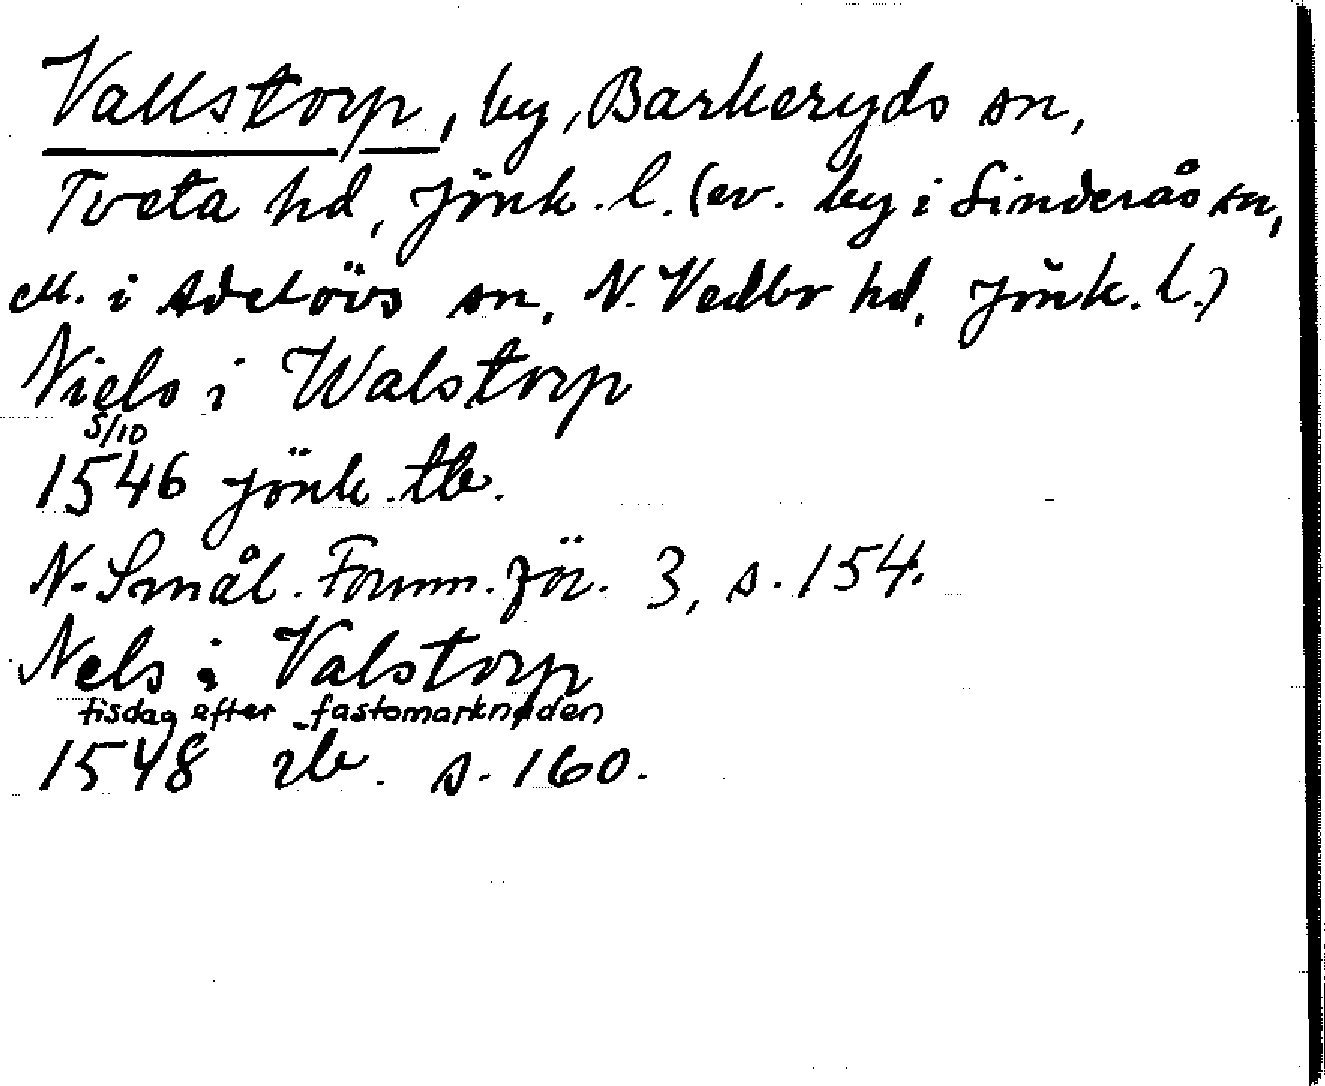 Vallstorp, by, Barkeryds sn,
Tveta hd, Jönk. l. (ev. by i Linderås sn,
ell. i Adelövs sn, N. Vedbo hd, Jönk. l.)
Niels i Walstorp
5/10
1546 Jönk. tb.
N. Smål. Fornm. för. 3, s. 154.
Nels i Valstorp
tisdag efter fastomarknaden
1548 ib. s. 160.